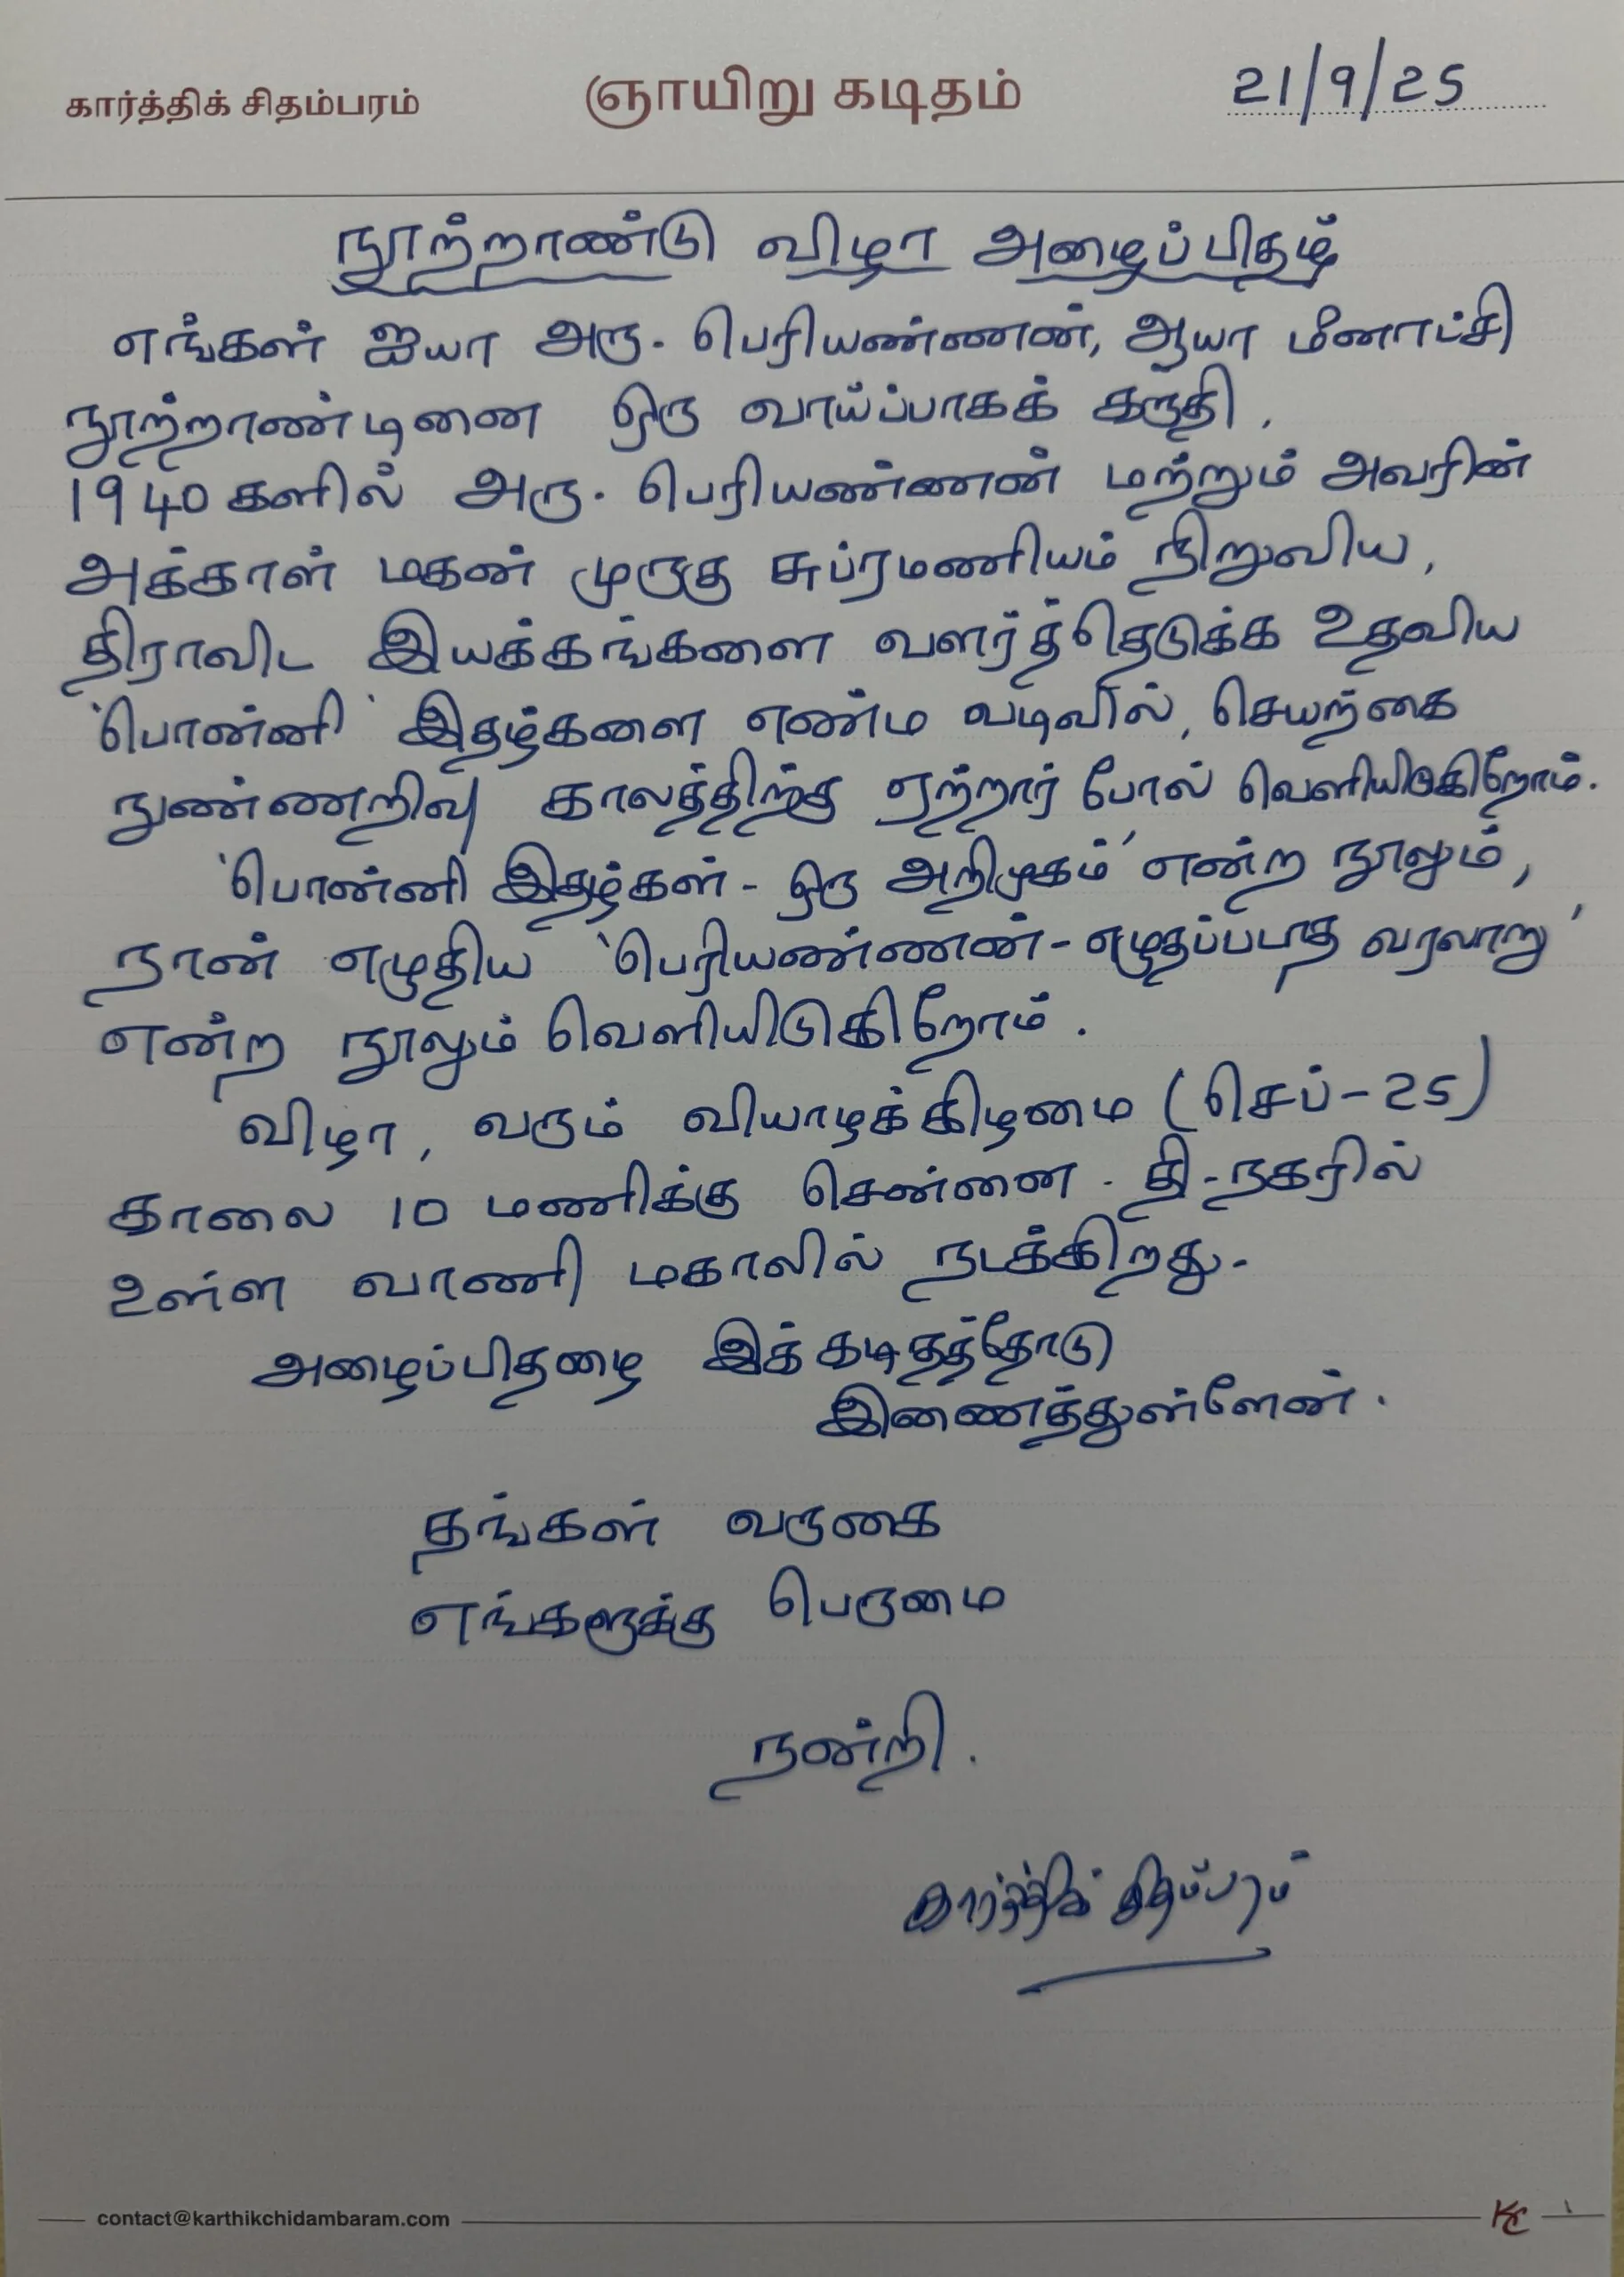 கார்த்திக் சிதம்பரம் ஞாயிறு கடிதம் 21/9/25
நூற்றாண்டு விழா அழைப்பிதழ்
எங்கள் ஐயா அரு. பெரியண்ணன், ஆயா மீனாட்சி
நூற்றாண்டினை ஒரு வாய்ப்பாகக் கருதி,
1940 களில் அரு. பெரியண்ணன் மற்றும் அவரின்
அக்காள் மகன் முருகு சுப்ரமணியம் நிறுவிய,
திராவிட இயக்கங்களை வளர்த்தெடுக்க உதவிய
'பொன்னி' இதழ்களை எண்ம வடிவில், செயற்கை
நுண்ணறிவு காலத்திற்கு ஏற்றார் போல் வெளியிடுகிறோம்.
'பொன்னி இதழ்கள் - ஒரு அறிமுகம்' என்ற நூலும்,
நான் எழுதிய 'பெரியண்ணன் - எழுதப்படாத வரலாறு'
என்ற நூலும் வெளியிடுகிறோம்.
விழா, வரும் வியாழக்கிழமை (செப் - 25)
காலை 10 மணிக்கு சென்னை - தி-நகரில்
உள்ள வாணி மகாலில் நடக்கிறது.
அழைப்பிதழை இக்கடிதத்தோடு
இணைத்துள்ளேன்.
தங்கள் வருகை
எங்களுக்கு பெருமை
நன்றி.
கார்த்திக் சிதம்பரம்
contact@karthikchidambaram.com KC